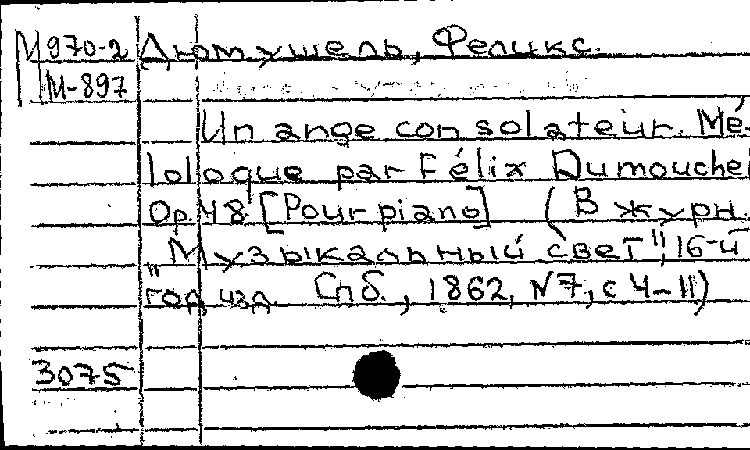 М 970-2 Дюмушель, Феликс.
М-897
Un ange consolateur. Mé-
loloque par Félix Dumouchel
Op. 48 [Pour piano] (В журн.
„Музыкальный свет", 16-й
год изд. Спб., 1862, №7, с 4-11)
3075